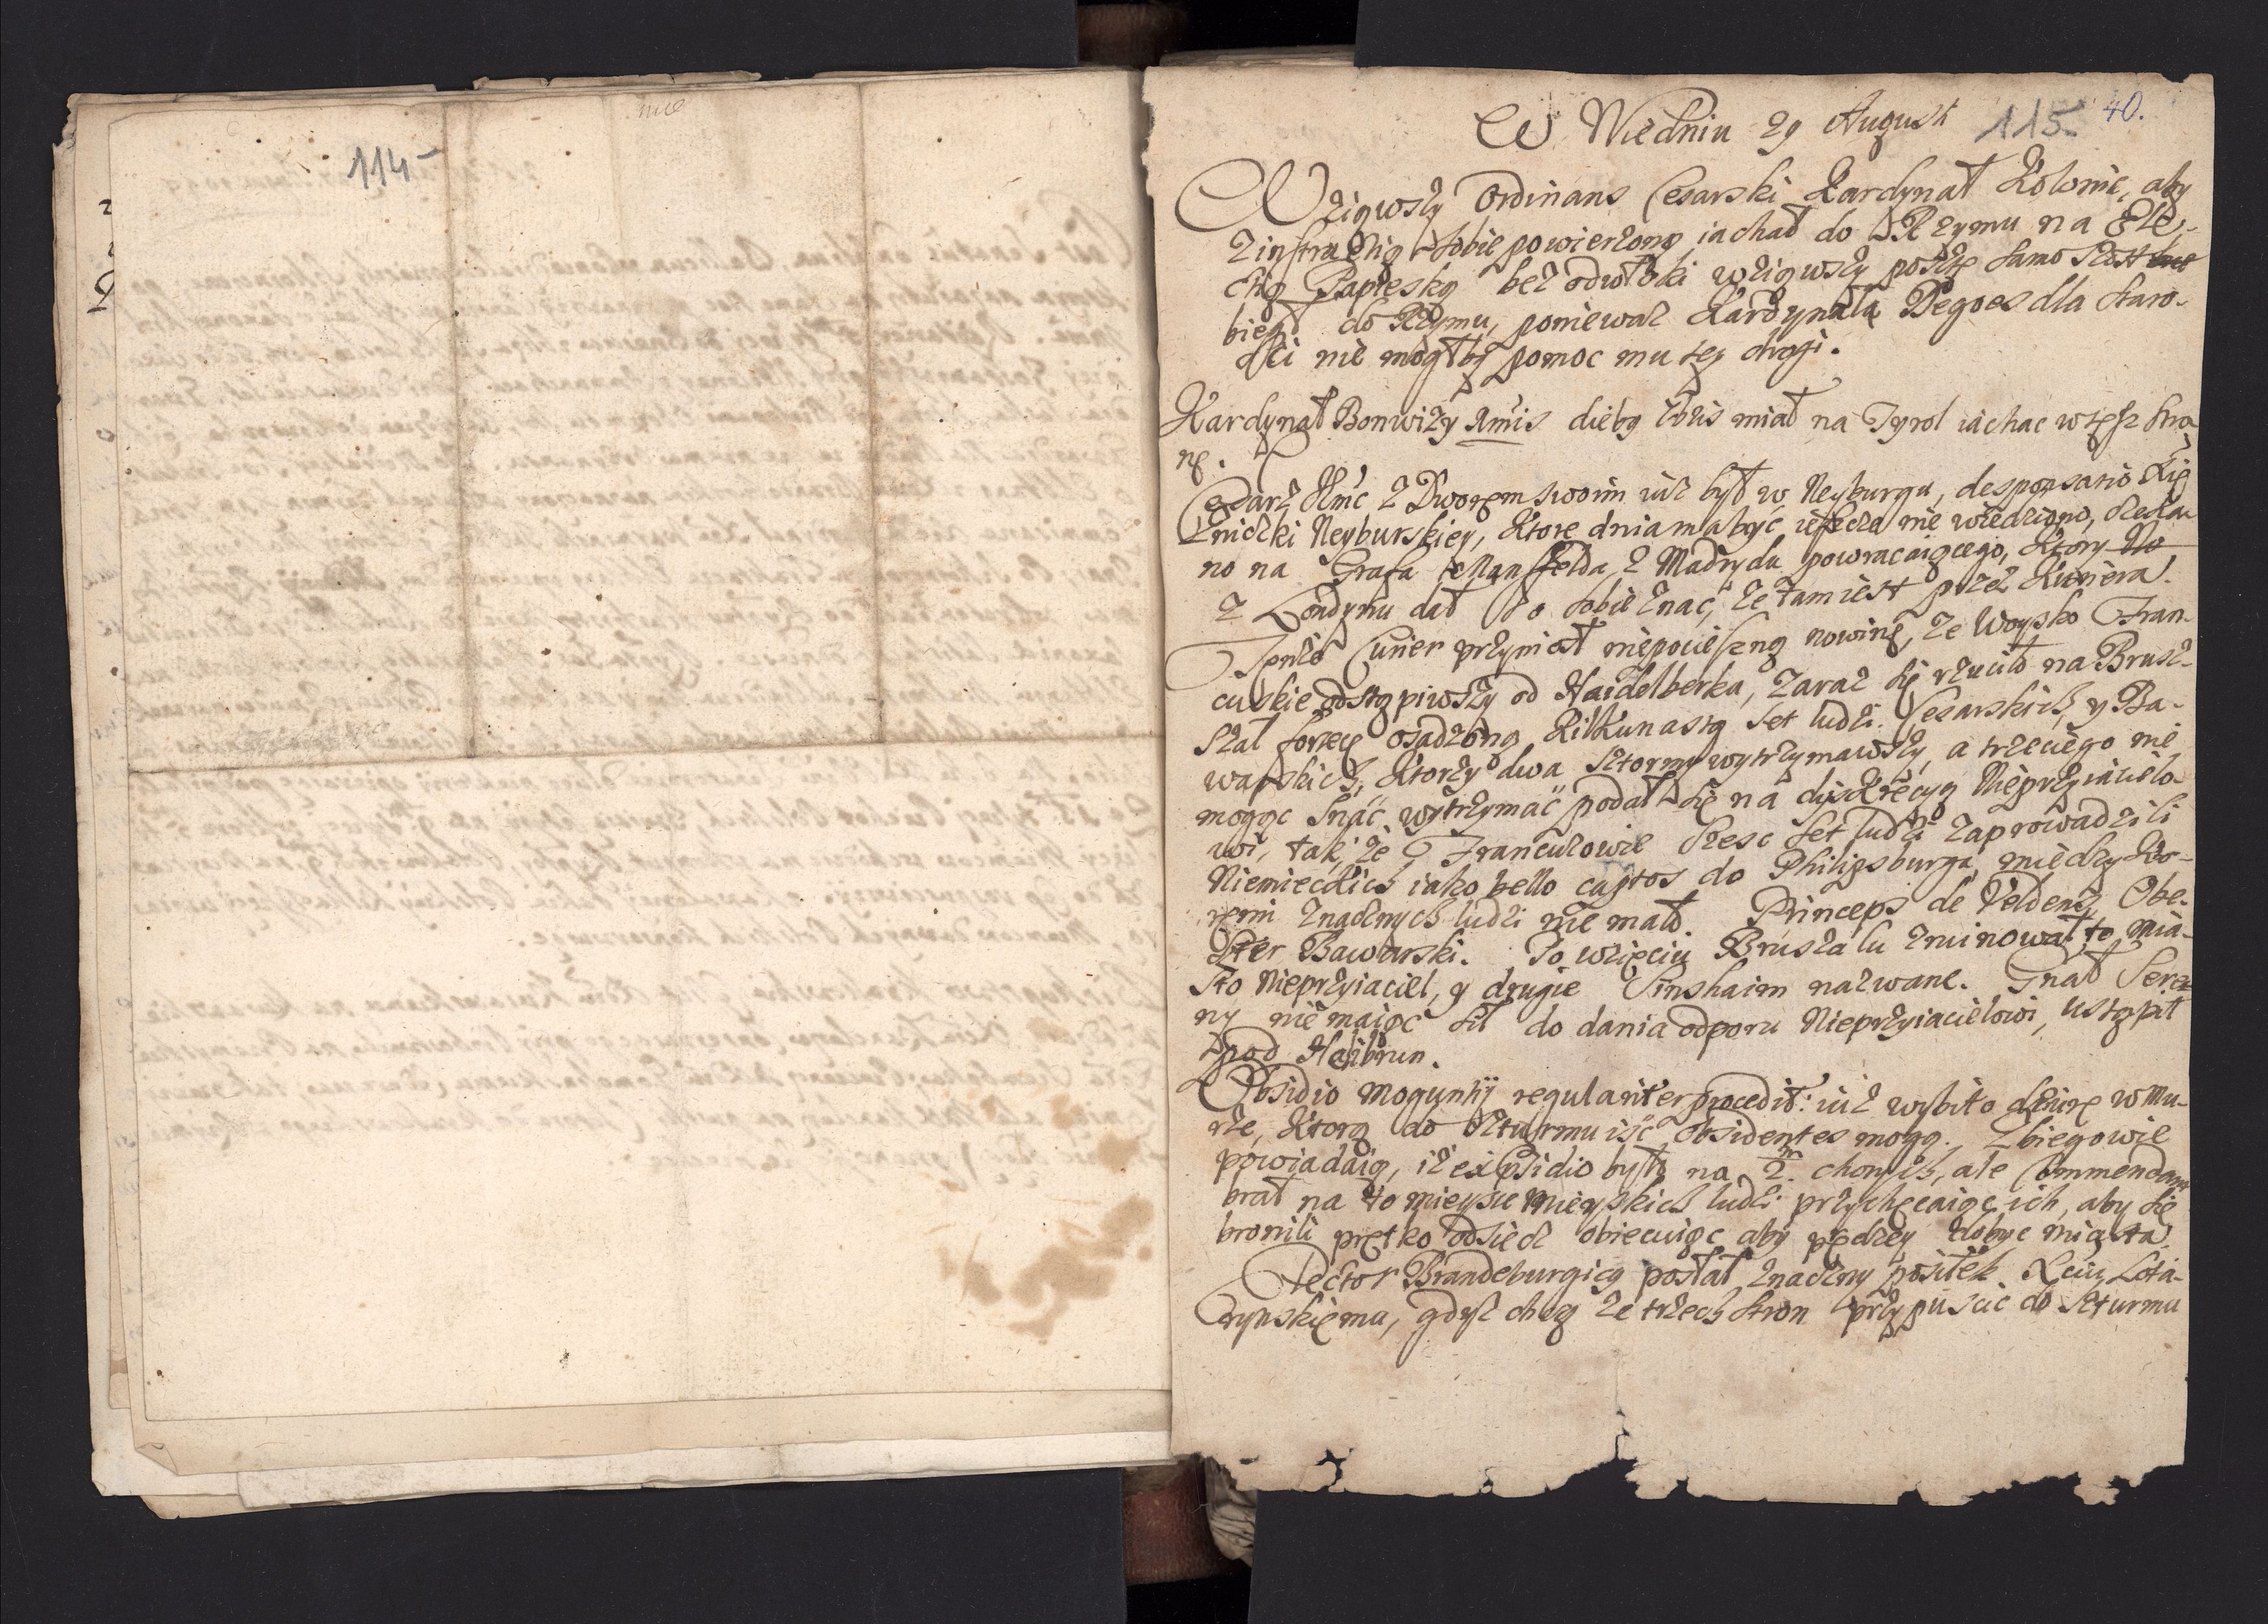 114
115 40.
W Wiedniu 29 August
Wziąwszy Ordinans Cesarski Kardynał Kolonic, aby
z instructią sobie powierzoną iachał do Rzymu na Ele-
ctią Papieską bez odwłoki wziąwszy posztę samo szost
bieg do Rzymu, poniewaz Kardynała Pegoes dla staro-
sci nie mogłby pomoc mu tey drogi.
Kardynał Bonwizy miał na Tyrol iachac w tęsz stro
nę.
Cesarz JMc z Dworęm swoim iuz był w Neyburgu, desponsatio Xię
zniczki Neyburskiey, ktore dnia ma być ieszcze nie wiedziano, czeka-
no na Grafa Mansfelda z Madrydu powracaiącego, ktory
z Londynu dał o sobie znac, ze tam iest przez Kuriera.
Tęnze Curier przyniosł niepocieszną nowinę, ze Woysko Fran-
cuskie odstąpiwszy od Haidelberka, zaraz się rzuciło na Brusz-
szal fortecę osadzoną kilkunastą set ludzi Cesarskich y Ba-
warskich, ktorzy dwa sztormy wytrzymawszy, a trzeciego nie
mogąc snać wytrzymać podali się na diskrecyą Nieprzyiacielo-
wi, tak ze Francuzowie szesc set ludzi zaprowadzili
Niemieckich iako bello captos do Philipsburga, między kto-
remi znacznych ludzi nie mało. Princeps de Veldentz Obe-
ster Bawarski. Po wzięciu Bruszalu zruinował to mia-
sto Nieprzyiaciel, y drugie Sinshaim nazwane. Graf Seré
ny nie maiąc sił do dania odporu Nieprzyiacielowi, ustąpił
pod Hailbrun.
Obsidio Moguntij regulariter procedit: iuz wybito dziurę w mu-
rze, ktorą do szturmu iść obsidentes mogą. Zbiegowie
powiadaią, iz ex presidio było na 2m. chorych, ale Commendant
brał na to mieysce mieyskich ludzi przychęcaiąc ich, aby się
bronili prętko odsiecz obiecuiąc aby
Elector Brandeburgicq posłał znaczny posiłek Xciu Lota-
ryńskięmu, gdyz chcą ze trzech stron przypuscic do szturmu